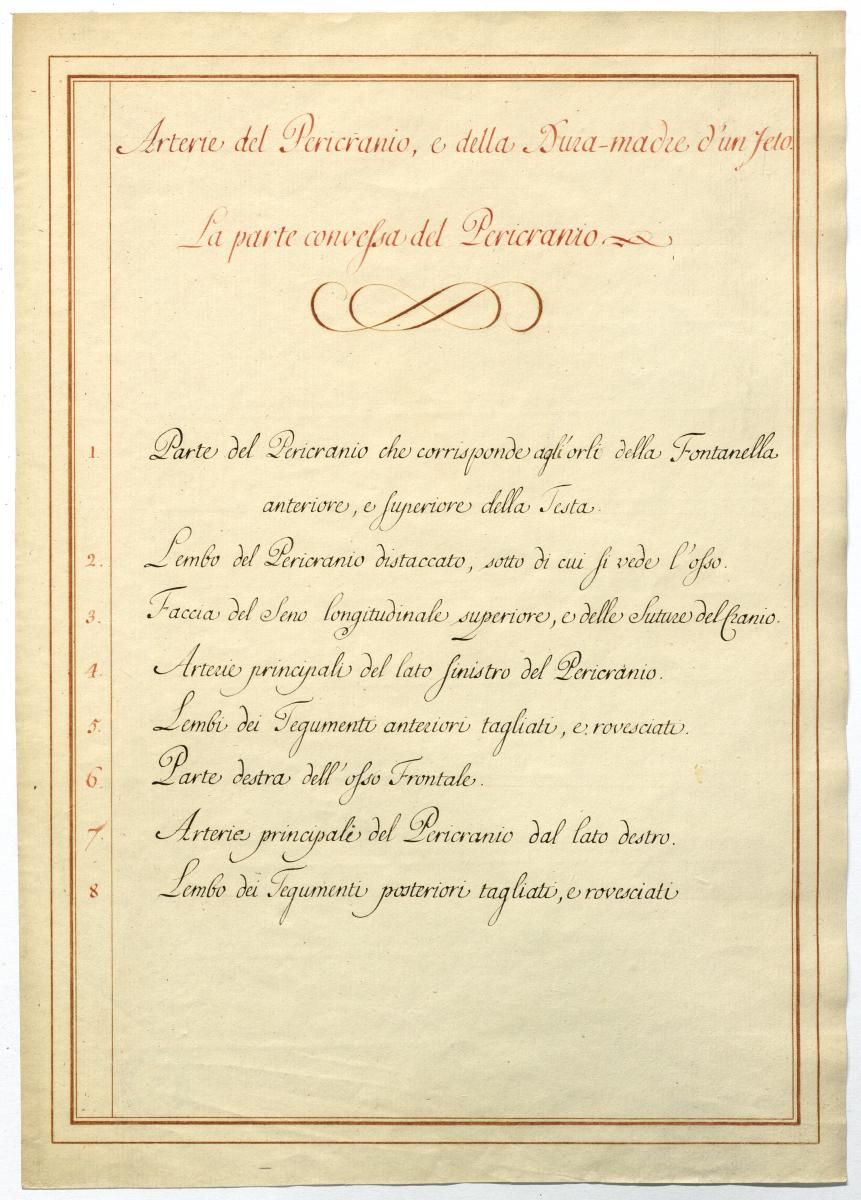 Arterie del Pericranio, e della Dura-madre d'un Feto.
La parte conveſsa del Pericranio.
1. Parte del Pericranio che corrisponde agli'orli della Fontanella
anteriore, e ſuperiore della Testa.
2. Lembo del Pericranio distaccato, sotto di cui ſi vede l'oſso.
3. Faccia del Seno longitudinale superiore, e delle Suture del Cranio.
4. Arterie principali del lato ſinistro del Pericranio.
5. Lembi dei Tegumenti anteriori tagliati, e rovesciati.
6. Parte destra dell'oſso Frontale.
7. Arterie principali del Pericranio dal lato destro.
8 Lembo dei Tegumenti posteriori tagliati, e rovesciati